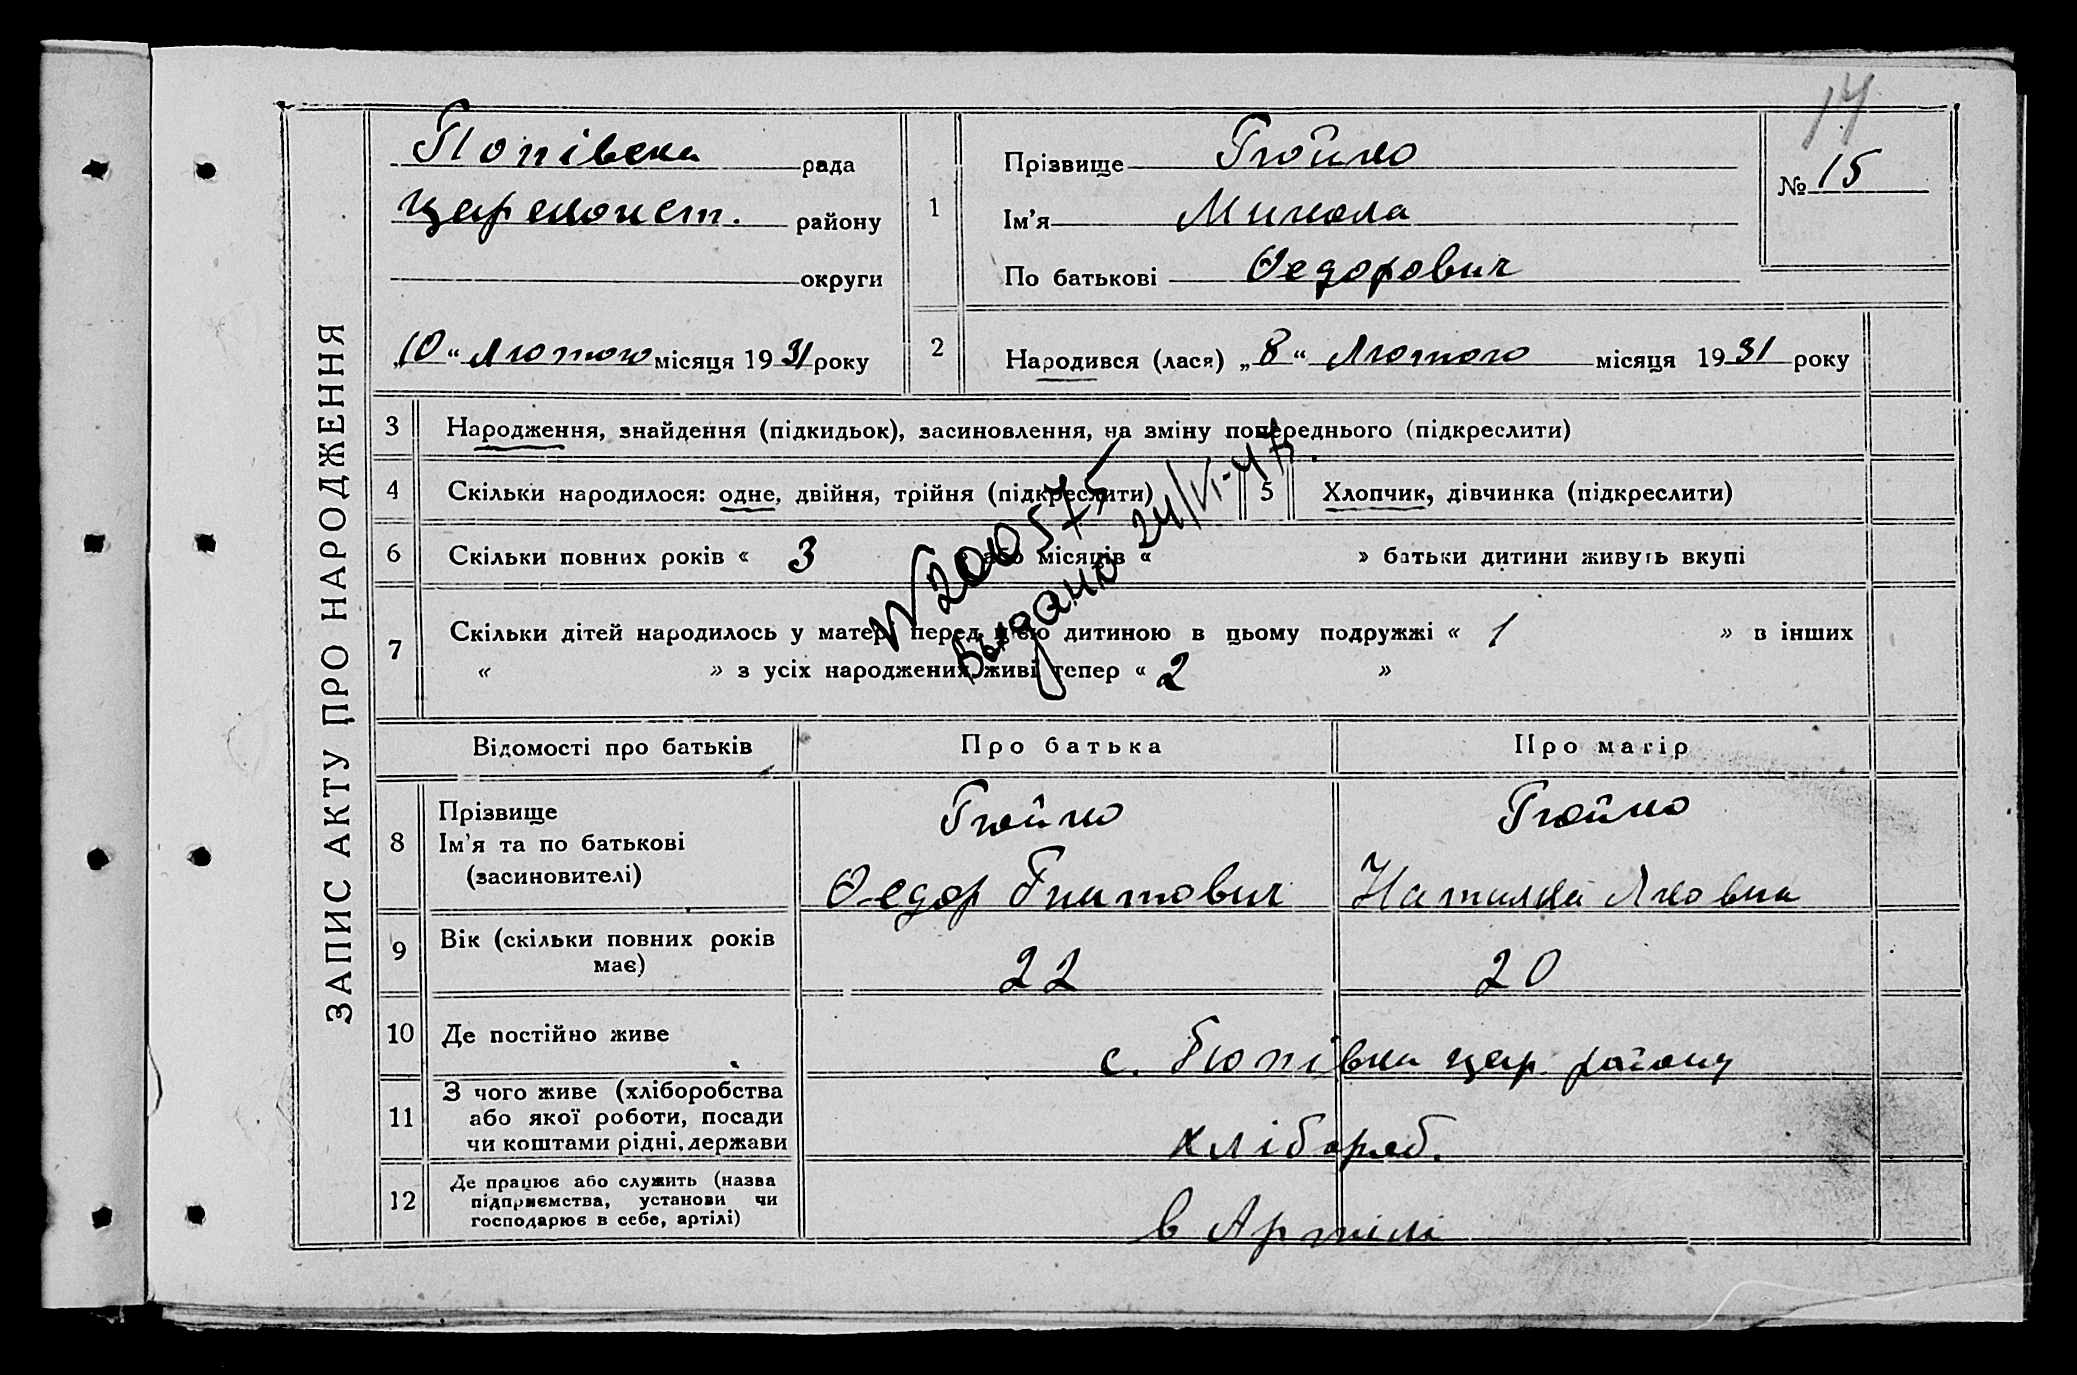 14
ЗАПИС АКТУ ПРО НАРОДЖЕННЯ
Попівська рада
Цареконст. району
округи
„10“ Лютого місяця 1931 року
1
Прізвище
Ім'я Микола
По батькові Федорович
№ 15
2
Народився (лася) „8“ Лютого місяця 1931 року
3 Народження, знайдення (підкидьок), засиновлення, на зміну попереднього (підкреслити)
4 Скільки народилося: одне, двійня, трійня (підкреслити)
5 Хлопчик, дівчинка (підкреслити)
6 Скільки повних років « 3 » або місяців « » батьки дитини живуть вкупі
7 Скільки дітей народилось у матері перед цією дитиною в цьому подружжі « 1 » в інших
« » з усіх народжених живі тепер « 2 »
№ 200575
Выдано 24/VI-47
Відомості про батьків
Про батька
Про матір
8
Прізвище
Ім'я та по батькові
(засиновителі)
Федор Гнатович
Наталка Яковна
9
Вік (скільки повних років
має)
22
20
10 Де постійно живе
с. Попівка цар. району
11
З чого живе (хліборобства
або якої роботи, посади
чи коштами рідні, держави
хлібороб.
12
Де працює або служить (назва
підприємства, установи чи
господарює в себе, артілі)
в Артілі